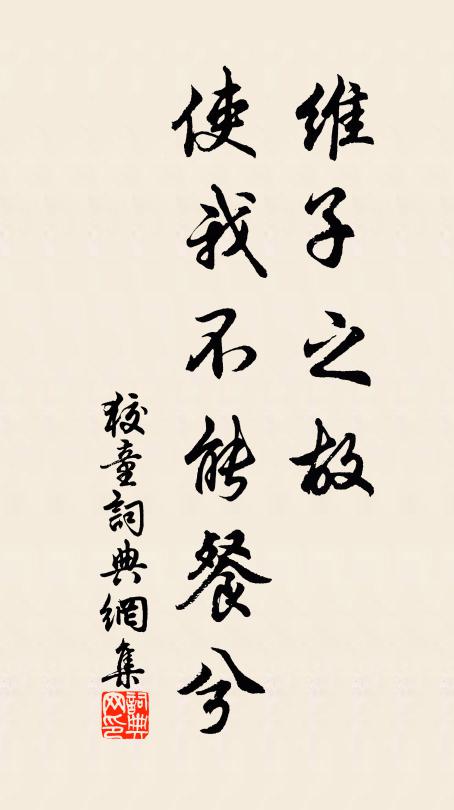 維子之故
使我不能餐兮
狡童詞典網集
詞典
网印